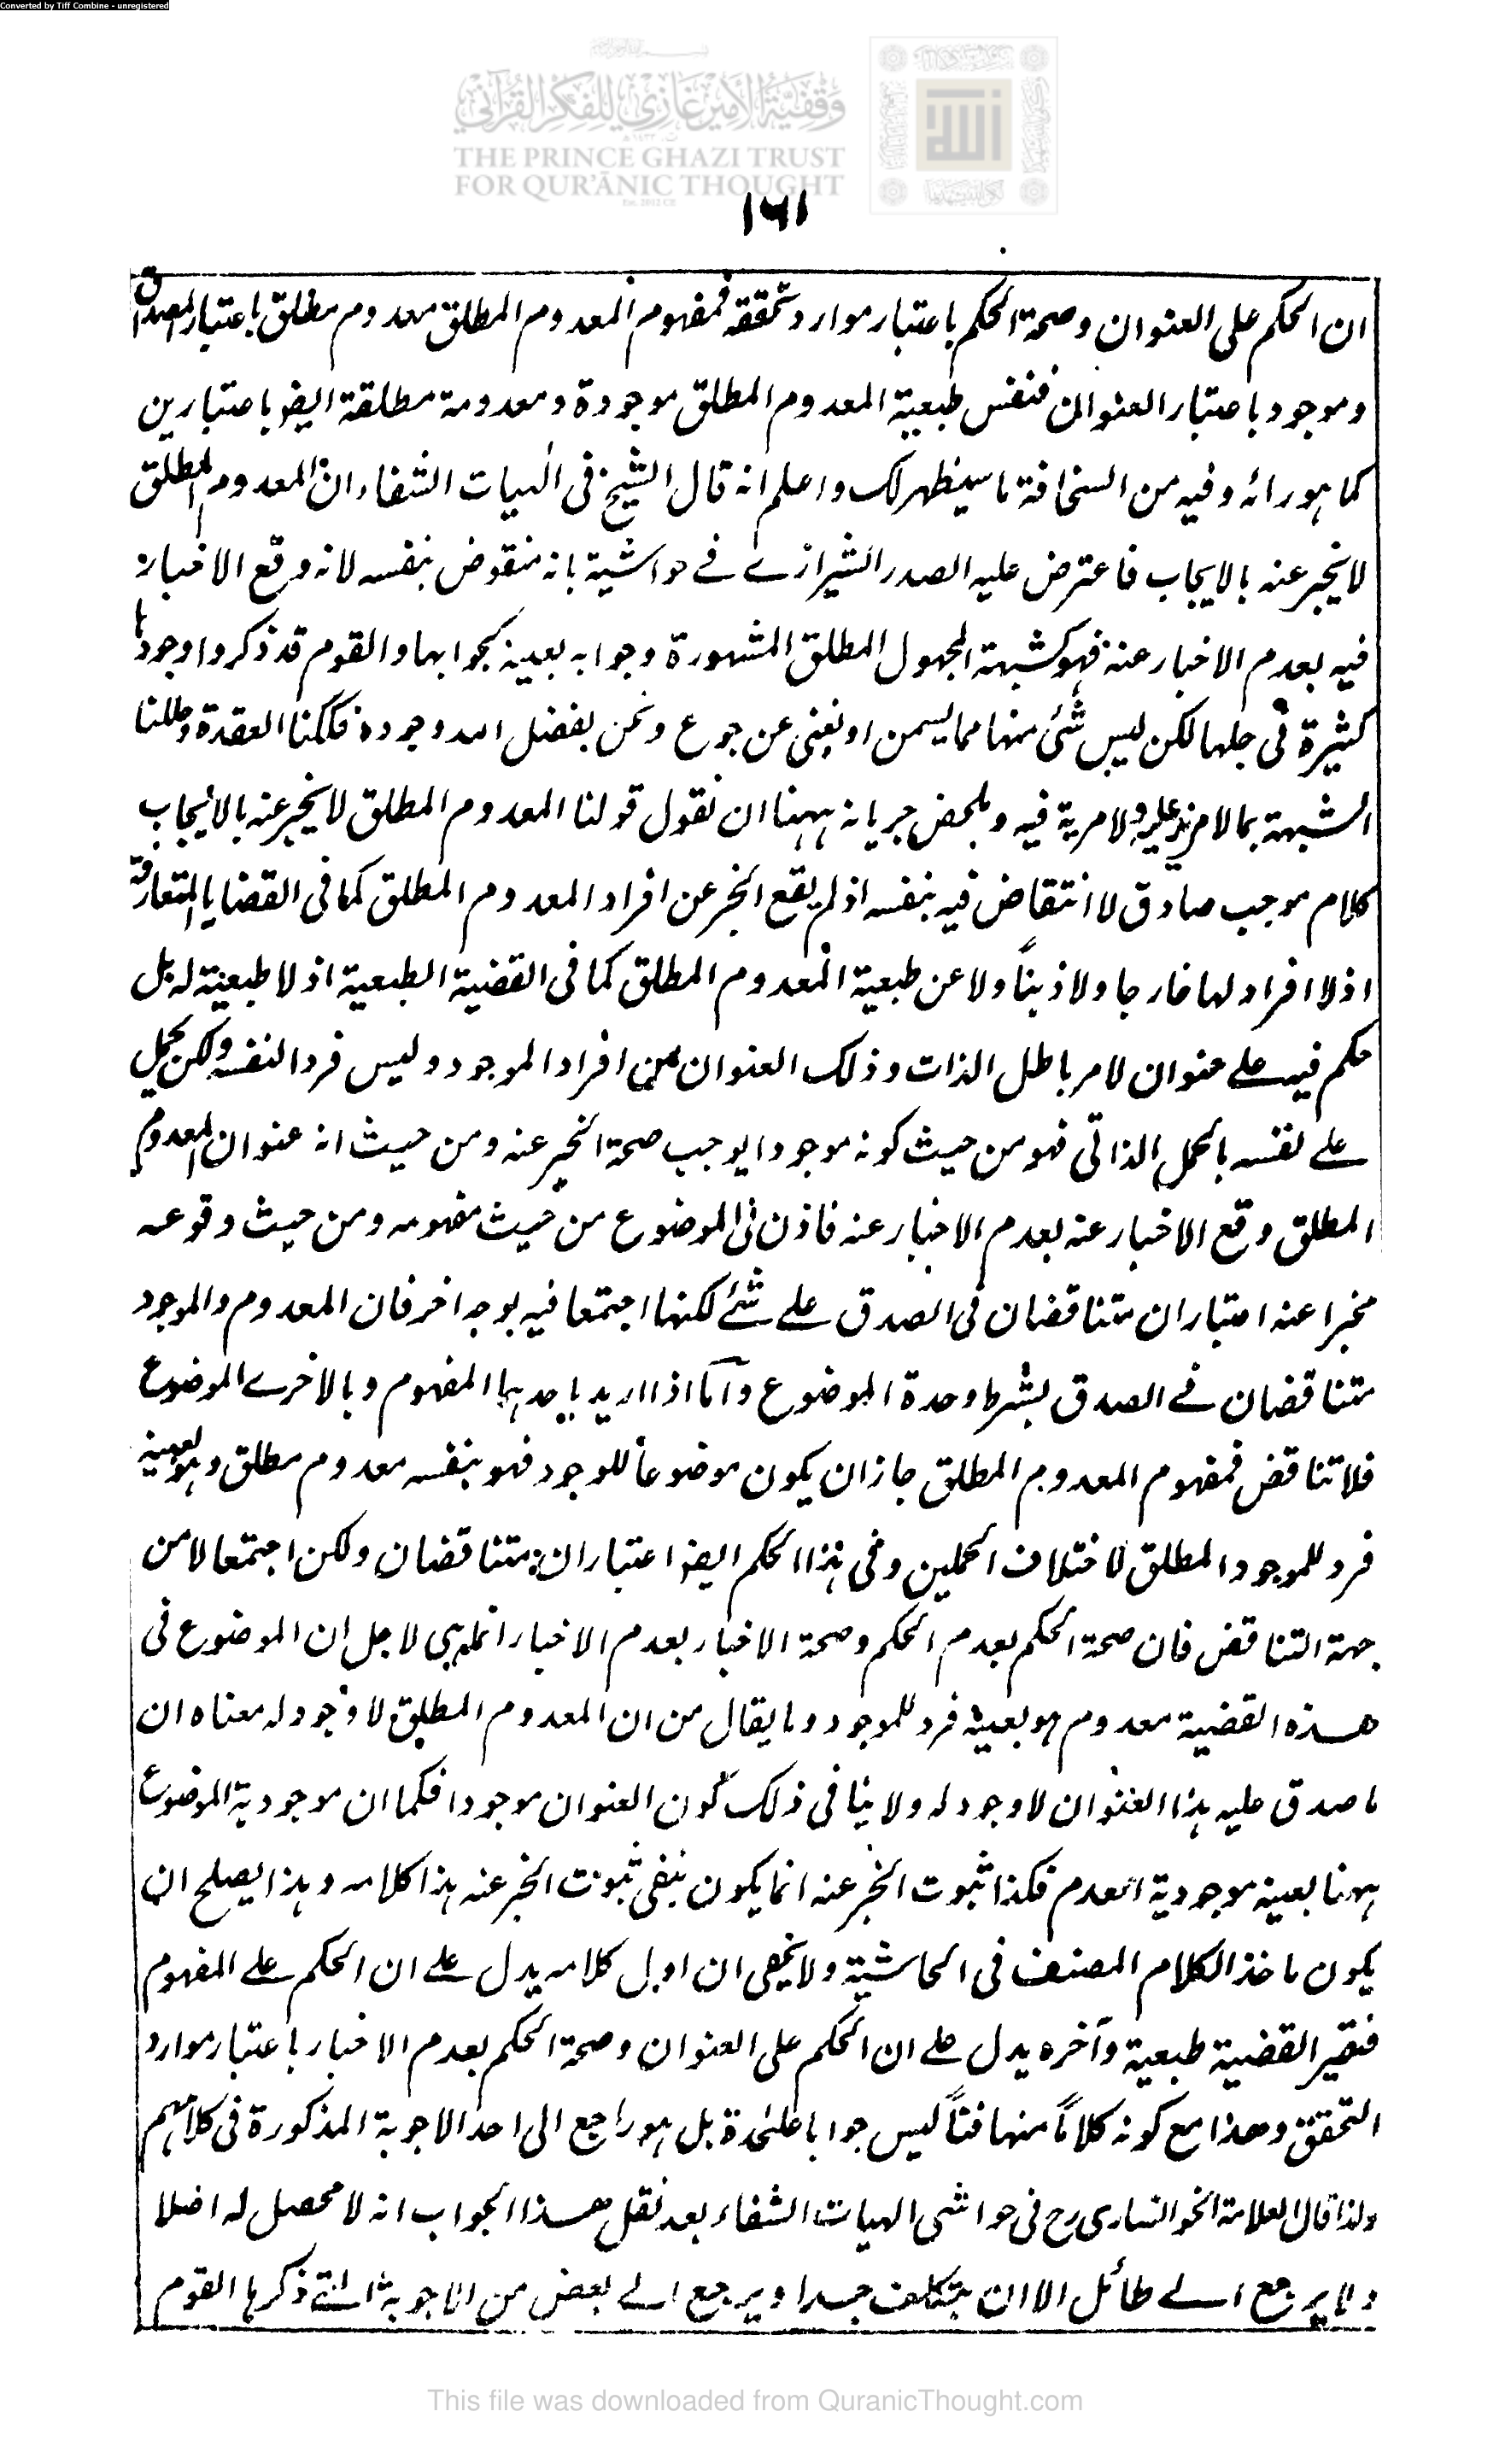 Converted by Tiff Combine - unregistered
وقفية الأمير غازي للفكر القرآني
THE PRINCE GHAZI TRUST
FOR QUR'ĀNIC THOUGHT
١٦١
ان الحكم على العنوان وصحة الحكم باعتبار موارد تحققه فمفهوم المعدوم المطلق معدوم مطلق باعتبار المصداق
وموجود باعتبار العنوان فنفس طبيعة المعدوم المطلق موجودة ومعدومة مطلقة ايضا باعتبارين
كما هو رائه وفيه من السخافة ما سيظهر لك واعلم انه قال الشيخ فى الهيات الشفاء ان المعدوم المطلق
لا يخبر عنه بالايجاب فاعترض عليه الصدر الشيرازے فے حواشية بانه منقوض بنفسه لانه وقع الاخبار
فيه بعدم الاخبار عنه فهو كشبهة المجهول المطلق المشهورة وجوابه بعينه كجوابها والقوم قد ذكروا وجوها
كثيرة فى حلها لكن ليس شئ منها مما يسمن او يغنى عن جوع ونحن بفضل الله وجوده فككنا العقدة وحللنا
الشبهة بما لا مزيد عليه ولا مرية فيه وملخص جريانه ههنا ان نقول قولنا المعدوم المطلق لا يخبر عنه بالايجاب
كلام موجب صادق لا انتقاض فيه بنفسه اذ لم يقع الخبر عن افراد المعدوم المطلق كما فى القضايا المتعارفة
اذ لا افراد لها خارجا ولا ذهناً ولا عن طبعية المعدوم المطلق كما فى القضية الطبعية اذ لا طبعية له بل
حكم فيه علے عنوان لامر باطل الذات وذلك العنوان من افراد الموجود وليس فردا لنفسه ولكن يحمل
علے نفسه بالحمل الذاتى فهو من حيث كونه موجودا يوجب صحة الخبر عنه ومن حيث انه عنوان المعدوم
المطلق وقع الاخبار عنه بعدم الاخبار عنه فاذن فى الموضوع من حيث مفهومه ومن حيث وقوعه
مخبرا عنه اعتباران متناقضان فى الصدق علے شئے لكنها اجتمعا فيه بوجه اخر فان المعدوم والموجود
متناقضان فے الصدق بشرط وحدة الموضوع وآما اذا اريد باحدهما المفهوم وبالاخرے الموضوع
فلا تناقض فمفهوم المعدوم المطلق جاز ان يكون موضوعاً للوجود فهو بنفسه معدوم مطلق وهو بعينه
فرد للموجود المطلق لاختلاف الحملين وفى هذا الحكم ايضا اعتباران متناقضان ولكن اجتمعا لا من
جهة التناقض فان صحة الحكم بعدم الحكم وصحة الاخبار بعدم الاخبار انما هى لاجل ان الموضوع فى
هذه القضية معدوم هو بعينه فرد للموجود وما يقال من ان المعدوم المطلق لا وجود له معناه ان
ما صدق عليه هذا العنوان لا وجود له ولا ينافى ذلك كون العنوان موجودا فكما ان موجودية الموضوع
ههنا بعينه موجودية العدم فكذا ثبوت الخبر عنه انما يكون بنفى ثبوت الخبر عنه هذا كلامه وهذا يصلح ان
يكون ماخذ الكلام المصنف فى الحاشية ولا يخفى ان اول كلامه يدل علے ان الحكم علے المفهوم
فتصير القضية طبعية وآخره يدل علے ان الحكم على العنوان وصحة الحكم بعدم الاخبار باعتبار موارد
التحقق وهذا مع كونه كلاماً متهافتاً ليس جوابا علىحدة بل هو راجع الى احد الاجوبة المذكورة فى كلامهم
ولذا قال العلامة الخوانسارى رح فى حواشى الهيات الشفاء بعد نقل هذا الجواب انه لا محصل له اصلا
ولا يرجع الے طائل الا ان يتكلف جدا ويرجع الے بعض من الاجوبة التے ذكرها القوم
This file was downloaded from QuranicThought.com